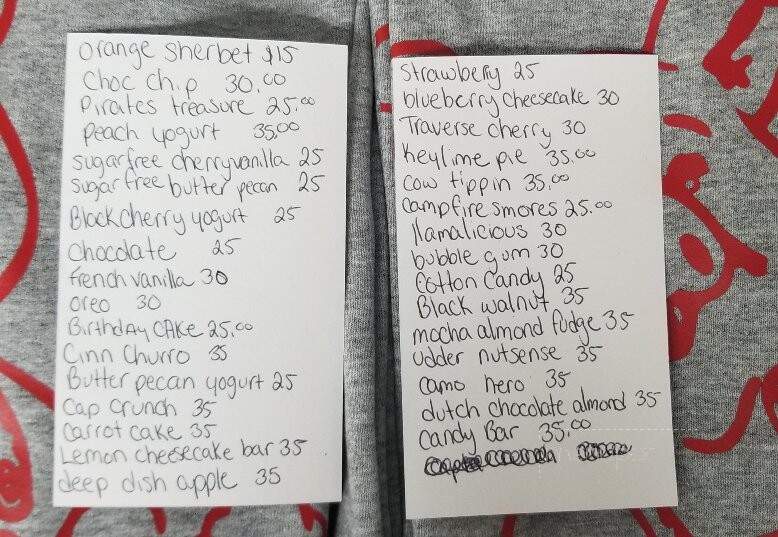 Orange Sherbet $15
Choc Chip 30.00
Pirates treasure 25.00
Peach yogurt 35.00
sugarfree cherryvanilla 25
sugar free butter pecan 25
Blackcherry yogurt 25
chocolate 25
french vanilla 30
oreo 30
Birthday CAKE 25.00
Cinn Churro 35
Butter pecan yogurt 25
Cap Crunch 35
Carrot cake 35
Lemon cheesecake bar 35
deep dish apple 35
Strawberry 25
blueberry cheesecake 30
Traverse cherry 30
Keylime pie 35.00
cow tippin 35.00
campfire smores 25.00
llamalicious 30
bubble gum 30
Cotton Candy 25
Black walnut 35
mocha almond fudge 35
udder nutsense 35
Camo hero 35
dutch chocolate almond 35
Candy Bar 35.00